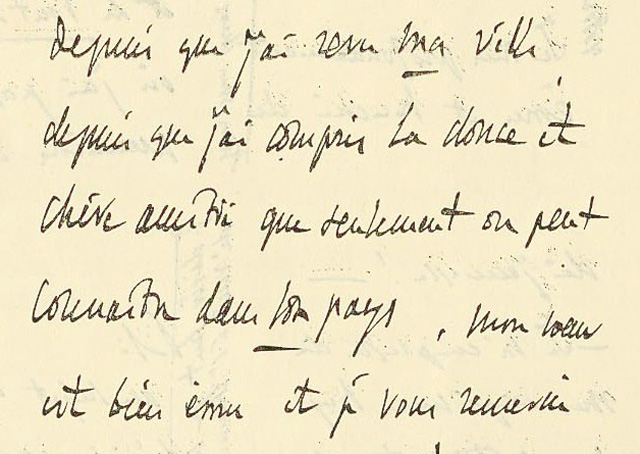 depuis que j'ai revu ma ville
depuis que j'ai compris la douce et
chère amitié que seulement on peut
connaitre dans son pays, mon cœur
est bien ému et je vous remercie